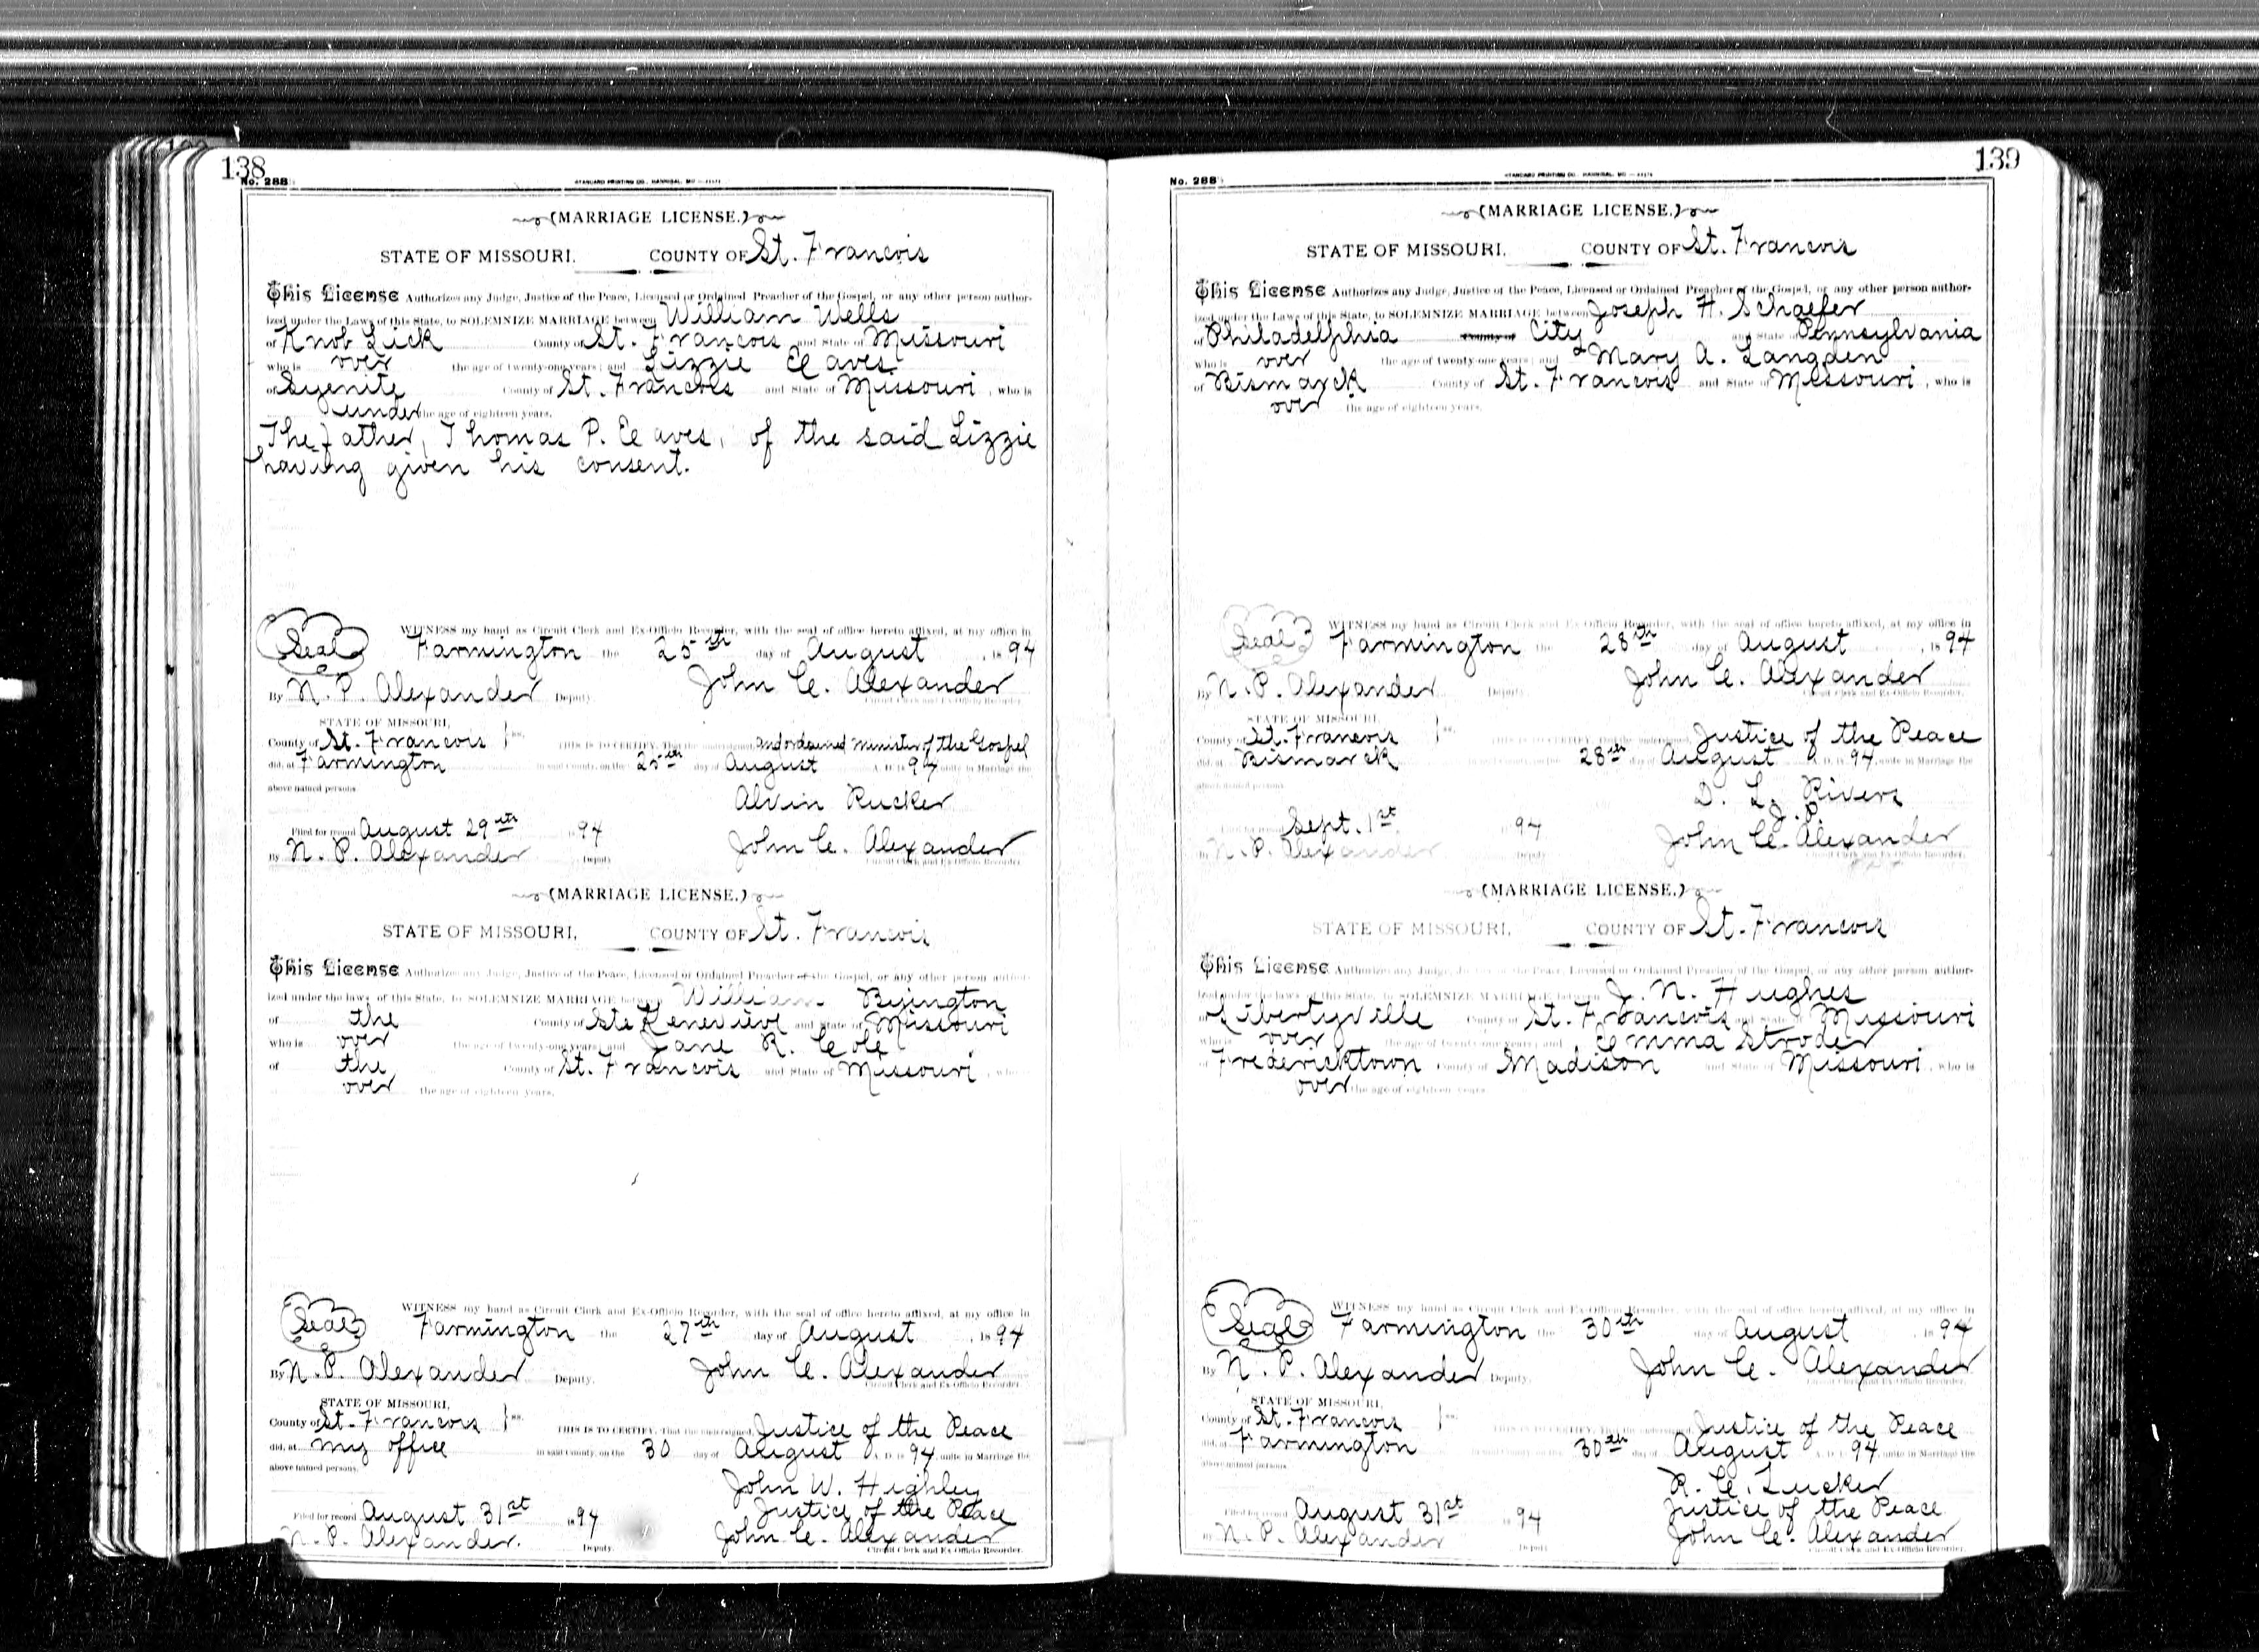 138
No. 288
STANDARD PRINTING CO., HANNIBAL, MO
(MARRIAGE LICENSE.)
STATE OF MISSOURI, COUNTY OF St. Francois
This License Authorizes any Judge, Justice of the Peace, Licensed or Ordained Preacher of the Gospel, or any other person author-
ized under the Laws of this State, to SOLEMNIZE MARRIAGE between William Wells
of Knob Lick County of St. Francois and State of Missouri
who is over the age of twenty-one years; and Lizzie Eaves
of Syenite County of St. Francois and State of Missouri, who is
under the age of eighteen years.
The father, Thomas P. Eaves, of the said Lizzie
having given his consent.
WITNESS my hand as Circuit Clerk and Ex-Officio Recorder, with the seal of office hereto affixed, at my office in
Seal Farmington the 25th day of August, 1894
By N. P. Alexander Deputy. John C. Alexander
Circuit Clerk and Ex-Officio Recorder.
STATE OF MISSOURI,
County of St. Francois ss. THIS IS TO CERTIFY, That the undersigned and ordained minister of the Gospel
did, at Farmington in said County, on the 25th day of August A. D. 1894 unite in Marriage the
above named persons.
Alvin Rucker
Filed for record August 29th 1894
By N. P. Alexander Deputy. John C. Alexander
Circuit Clerk and Ex-Officio Recorder.
(MARRIAGE LICENSE.)
STATE OF MISSOURI, COUNTY OF St. Francois
This License Authorizes any Judge, Justice of the Peace, Licensed or Ordained Preacher of the Gospel, or any other person author-
ized under the laws of this State, to SOLEMNIZE MARRIAGE between William Byington
of the County of Ste Genevieve and State of Missouri
who is over the age of twenty-one years; and Jane R. Cole
of the County of St. Francois and State of Missouri, who
over the age of eighteen years.
WITNESS my hand as Circuit Clerk and Ex-Officio Recorder, with the seal of office hereto affixed, at my office in
Seal Farmington the 27th day of August, 1894
By N. P. Alexander Deputy. John C. Alexander
Circuit Clerk and Ex-Officio Recorder.
STATE OF MISSOURI,
County of St. Francois ss. THIS IS TO CERTIFY, That the undersigned Justice of the Peace
did, at my office in said County, on the 30 day of August A. D. 1894 unite in Marriage the
above named persons.
John W. Highley
Justice of the Peace
Filed for record August 31st 1894
N. P. Alexander. Deputy. John C. Alexander
Circuit Clerk and Ex Officio Recorder.
139
No. 288
STANDARD PRINTING CO., HANNIBAL, MO
(MARRIAGE LICENSE.)
STATE OF MISSOURI, COUNTY OF St. Francois
This License Authorizes any Judge, Justice of the Peace, Licensed or Ordained Preacher of the Gospel, or any other person author-
ized under the Laws of this State, to SOLEMNIZE MARRIAGE between Joseph H. Schaefer
of Philadelphia County of City and State Pennsylvania
who is over the age of twenty-one years; and Mary A. Langden
of Bismarck County of St. Francois and State of Missouri, who is
over the age of eighteen years.
WITNESS my hand as Circuit Clerk and Ex Officio Recorder, with the seal of office hereto affixed, at my office in
Seal Farmington the 28th day of August, 1894
By N. P. Alexander Deputy. John C. Alexander
Circuit Clerk and Ex-Officio Recorder.
STATE OF MISSOURI,
County of St. Francois ss. Justice of the Peace
did, at Bismarck 28th day of August A. D. 1894, unite in Marriage the
above named persons.
D. L. Rivers
J. P.
Sept. 1st 1894
By N. P. Alexander Deputy John C. Alexander
Circuit Clerk and Ex-Officio Recorder.
(MARRIAGE LICENSE.)
STATE OF MISSOURI, COUNTY OF St. Francois
This License Authorizes any Judge, Justice of the Peace, Licensed or Ordained Preacher of the Gospel, or any other person author-
ized under the laws of this State, to SOLEMNIZE MARRIAGE between J. N. Hughes
of Libertyville County of St. Francois and State of Missouri
who is over the age of twenty-one years; and Emma Stroder
of Fredericktown County of Madison and State of Missouri, who is
over the age of eighteen years.
WITNESS my hand as Circuit Clerk and Ex-Officio Recorder, with the seal of office hereto affixed, at my office in
Seal Farmington the 30th day of August, 1894
By N. P. Alexander Deputy. John C. Alexander
Circuit Clerk and Ex-Officio Recorder.
STATE OF MISSOURI,
County of St. Francois ss. Justice of the Peace
did, at Farmington 30th day of August A. D. 1894 unite in Marriage the
above named persons.
R. C. Tucker
Justice of the Peace
Filed for record August 31st 1894
By N. P. Alexander Deputy John C. Alexander
Circuit Clerk and Ex-Officio Recorder.